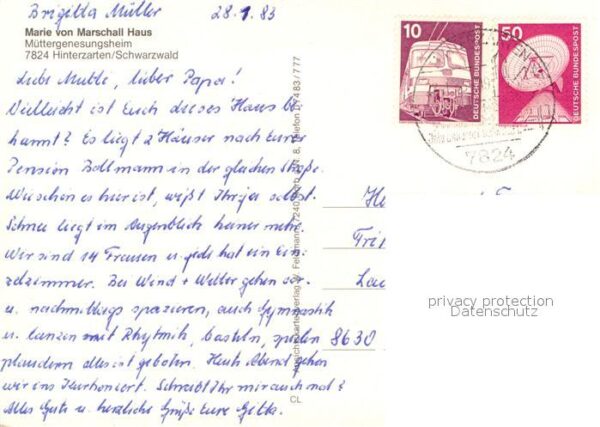 Brigitta Müller 28.1.83
Marie von Marschall Haus
Müttergenesungsheim
7824 Hinterzarten/Schwarzwald
Liebe Mutti, lieber Papa!
Vielleicht ist Euch dieses Haus be
kannt? Es liegt 2 Häuser nach Eurer
Pension Bollmann in der gleichen Straße.
Wie schön es hier ist, wißt Ihr ja selbst.
Schnee liegt im Augenblick keiner mehr.
Wir sind 14 Frauen u. jede hat ein Ein-
zelzimmer. Bei Wind + Wetter gehen vor-
u. nachmittags spazieren, auch Gymnastik
u. tanzen mit Rhytmik, basteln, spielen
plaudern alles ist geboten. Heute Abend gehen
wir ins Kurkonzert. Schreibt Ihr mir auch mal?
Alles Gute u. herzliche Grüße Eure Gitta.
Ansichtskartenverlag W. Fehrmann, 7240 Horb Nr. 8, Telefon 07483/777
CL
10
DEUTSCHE BUNDESPOST
50
DEUTSCHE BUNDESPOST
7824
He
Fri
Lau
8630
privacy protection
Datenschutz